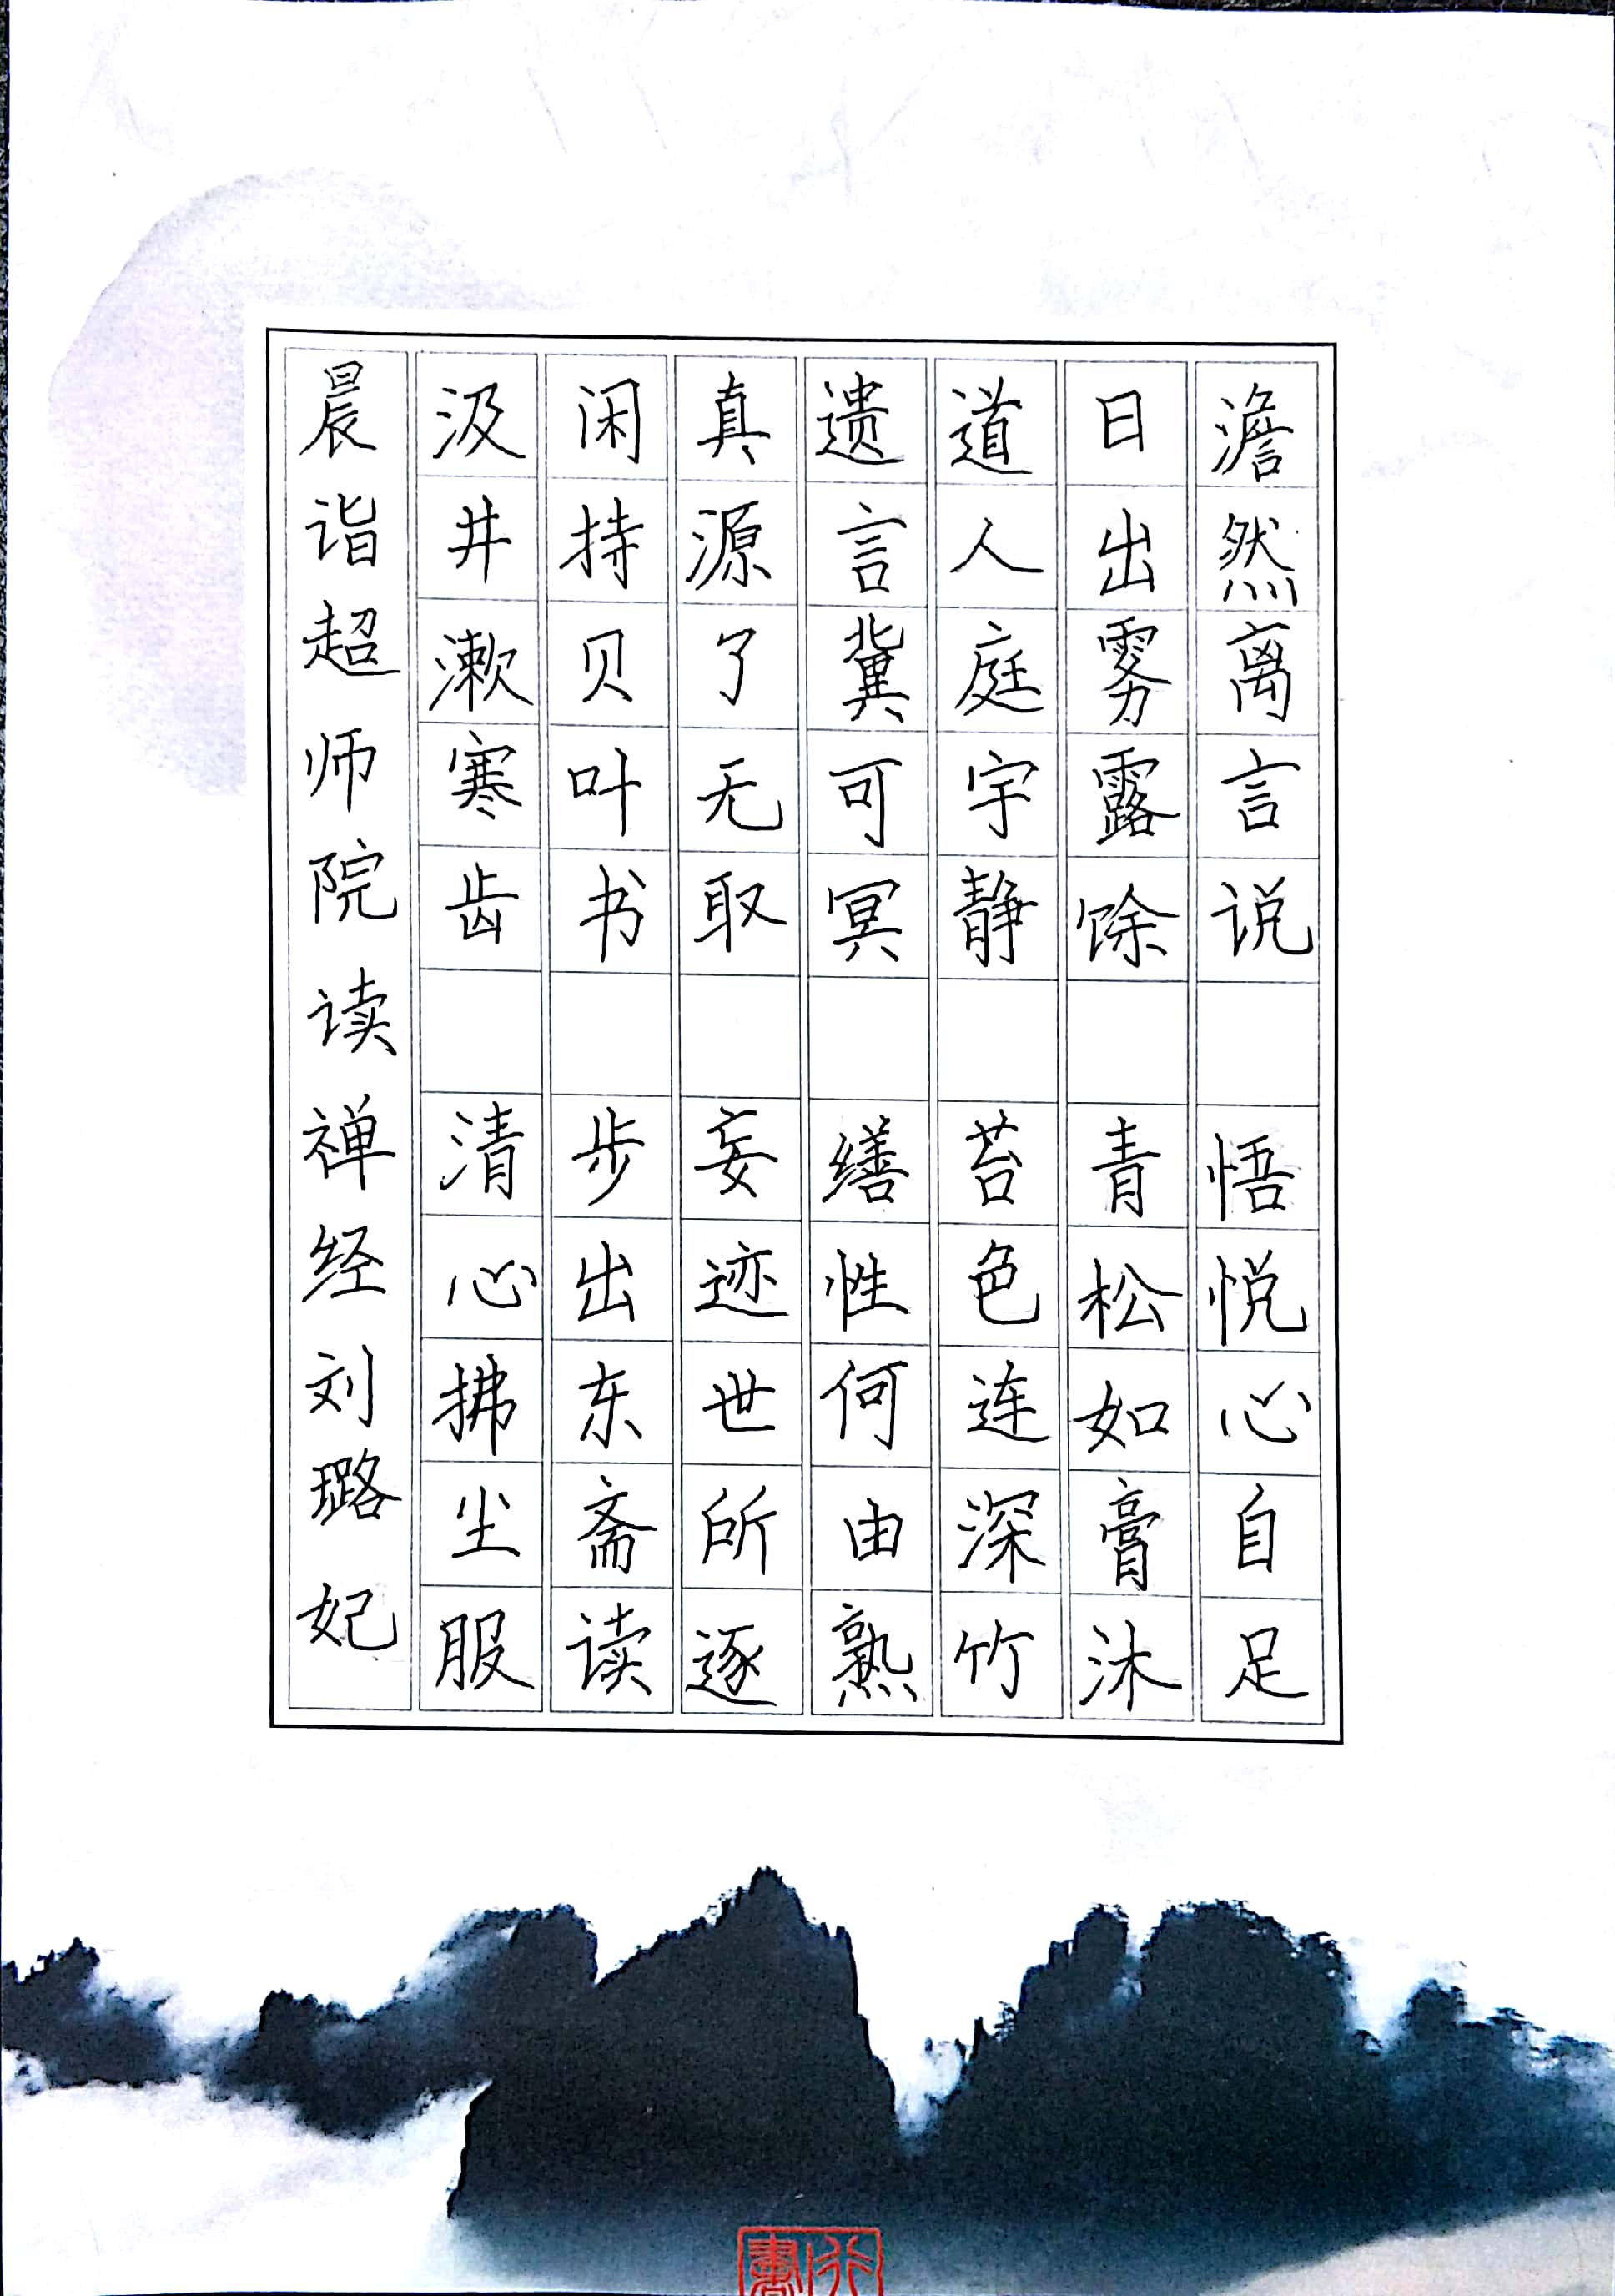 晨诣超师院读禅经刘璐妃
汲井漱寒齿 清心拂尘服
闲持贝叶书 步出东斋读
真源了无取 妄迹世所逐
遗言冀可冥 缮性何由熟
道人庭宇静 苔色连深竹
日出雾露馀 青松如膏沐
澹然离言说 悟悦心自足